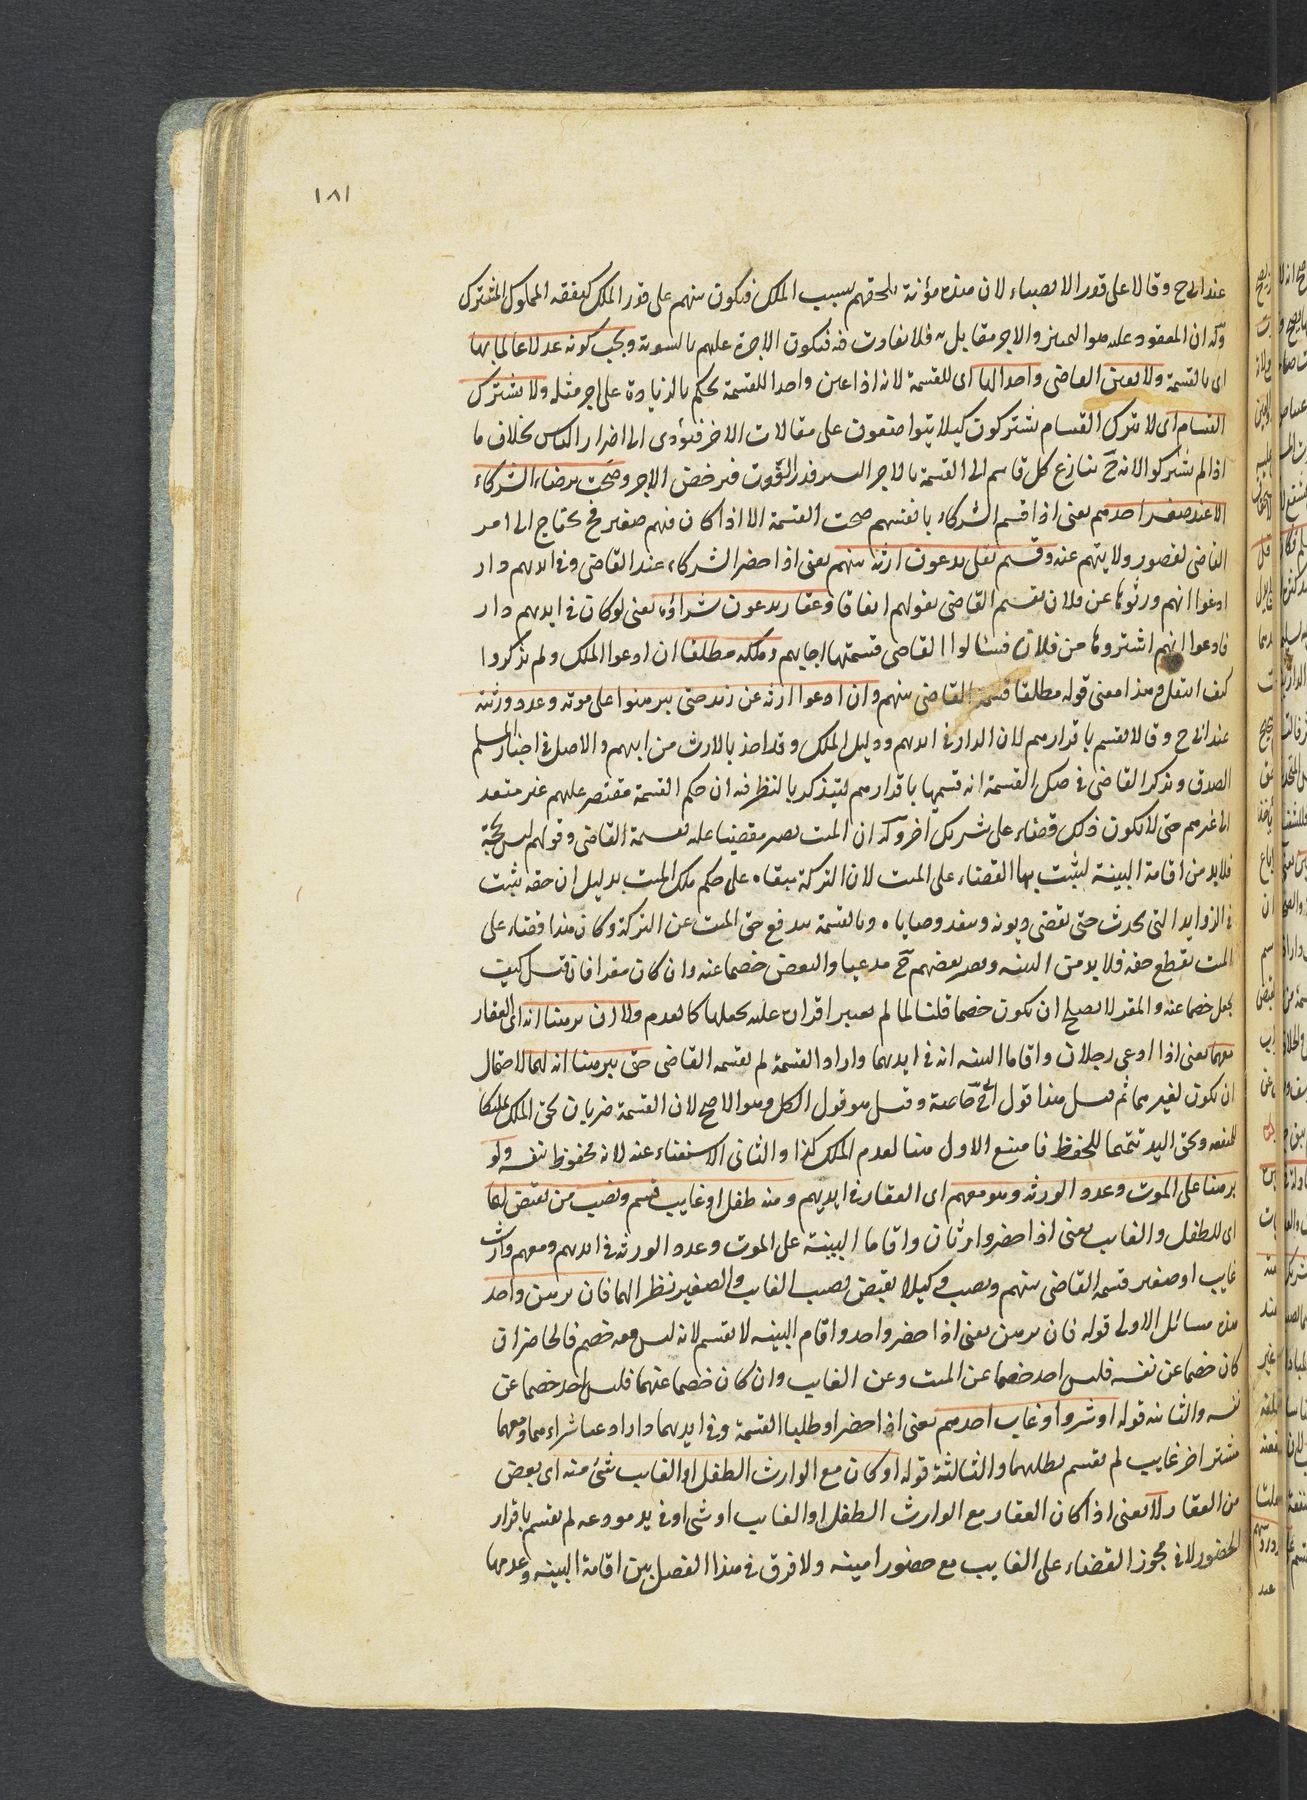 ١٨١
عند ابى ح وقالا على قدر الانصباء لان هذه مؤنة تلحقهم بسبب الملك فتكون بينهم على قدر الملك كنفقة المملوك المشترك
وله ان المعقود عليه هو التمييز والاجر مقابل به فلا تفاوت فيه فتكون الاجرة عليهم بالسوية ويجب كونه عدلا عالما بها
اى بالقسمة ولا يعين القاضى واحدا لها اى للقسمة لانه اذا عين واحدا للقسمة يحكم بالزيادة على اجر مثله ولا يشترك
القسام اى لا يترك القسام يشتركون كيلا يتواضعون على مقالات الاخر فيؤدى الى اضرار الناس بخلاف ما
اذا لم يشتركوا لانه ح يتنازع كل قاسم الى القسمة بالاجر اليسير قدر القوت فيرخص الاجر وصحت برضاء الشركاء
الا عند صغر احدهم يعنى اذا قسم الشركاء بانفسهم صحت القسمة الا اذا كان فيهم صغير فح يحتاج الى امر
القاضى لقصور ولايتهم عنه وقسم نقلى يدعون ارثه بينهم يعنى اذا حضر الشركاء عند القاضى وفى ايديهم دار
ادعوا انهم ورثوها عن فلان يقسم القاضى بقولهم اتفاقا وعقار يدعون شراؤه يعنى لو كان فى ايديهم دار
فادعوا انهم اشتروها من فلان فسالوا القاضى قسمتها اجابهم وملكه مطلقا ان ادعوا الملك ولم يذكروا
كيف انتقل وهذا معنى قوله مطلقا قسمه القاضى بينهم وان ادعوا ارثه عن زيد حتى يبرهنوا على موته وعدد ورثته
عند ابى ح وقالا تقسم باقرارهم لان الدار فى ايديهم ودليل الملك وقد اخذ بالارث من ابيهم والاصل فى اخبار المسلم
الصدق ويذكر القاضى فى صك القسمة انه قسمها باقرارهم ليتذكر بالنظر فيه ان حكم القسمة مقتصر عليهم غير متعد
الى غيرهم حتى لا يكون ذلك قضاء على شريك آخر وله ان الميت يصير مقضيا عليه بقسمة القاضى وقولهم ليس بحجة
فلا بد من اقامة البينة ليثبت بها القضاء على الميت لان التركة مبقاة على حكم ملك الميت بدليل ان حقه يثبت
فى الزوايد التى تحدث حتى تقضى ديونه وينفذ وصاياه وبالقسمة يندفع حق الميت عن التركة وكان هذا قضاء على
الميت بقطع حقه فلا بد من البينة ويصير بعضهم ح مدعيا والبعض خصما عنه وان كان مقرا فان قيل كيف
يجعل خصما عنه والمقر لا يصلح ان يكون خصما قلنا لما لم يعتبر اقراره عليه يجعلها كالعدم ولا ان برهنا انه اى العقار
معهما يعنى اذا ادعى رجلان واقاما البينة انه فى ايديهما وارادا القسمة لم يقسمه القاضى حتى يبرهنا انه لهما لاحتمال
ان يكون لغيرهما ثم قيل هذا قول ابى ح خاصة وقيل هو قول الكل وهو الاصح لان القسمة ضربان بحق الملك تمليكا
للمنفعة وبحق اليد تتميما للحفظ فامتنع الاول هنا لعدم الملك كذا والثانى الاستغناء عنه لانه محفوظ بنفسه ولو
برهنا على الموت وعدد الورثة وهو معهم اى العقار فى ايديهم ومنه طفل او غايب قسم ونصب من يقبض لهما
اى للطفل والغايب يعنى اذا حضر وارثان واقاما البينة على الموت وعدد الورثة فى ايديهم ومعهم وارث
غايب او صغير قسمه القاضى بينهم ونصب وكيلا يقبض نصيب الغايب والصغير نظرا لهما فان برهن واحد
هذه مسائل الاولى قوله فان برهن يعنى اذا حضر واحد واقام البينة لا تقسم لانه ليس معه خصم فالحاضر ان
كان خصما عن نفسه فليس احد خصما عن الميت وعن الغايب وان كان خصما عنهما فليس احد خصما عن
نفسه والثانية قوله او شروا وغاب احدهم يعنى اذا حضرا وطلبا القسمة وفى ايديهما دار ادعيا شراءهما ومعهما
مشتر اخر غايب لم تقسم بطلبهما والثالثة قوله او كان مع الوارث الطفل او الغايب شئ منه اى بعض
من العقار لا يعنى اذا كان العقار مع الوارث الطفل او الغايب او شئ او فى يد مودعه لم تقسم باقرار
الحضور لا فى مجوز القضاء على الغايب مع حضور امينه ولا فرق فى هذا الفصل بين اقامة البينة وعدمها